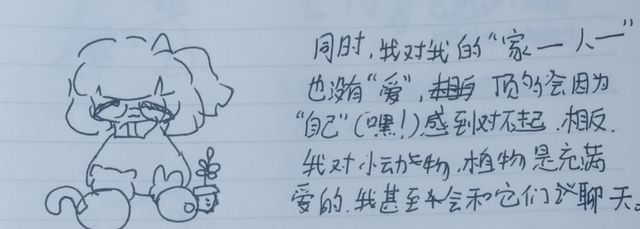 同时，我对我的“家一人一”
也没有“爱”，顶多会因为
“自己”（嘿！）感到对不起．相反．
我对小动物，植物是充满
爱的．我甚至会和它们聊天。